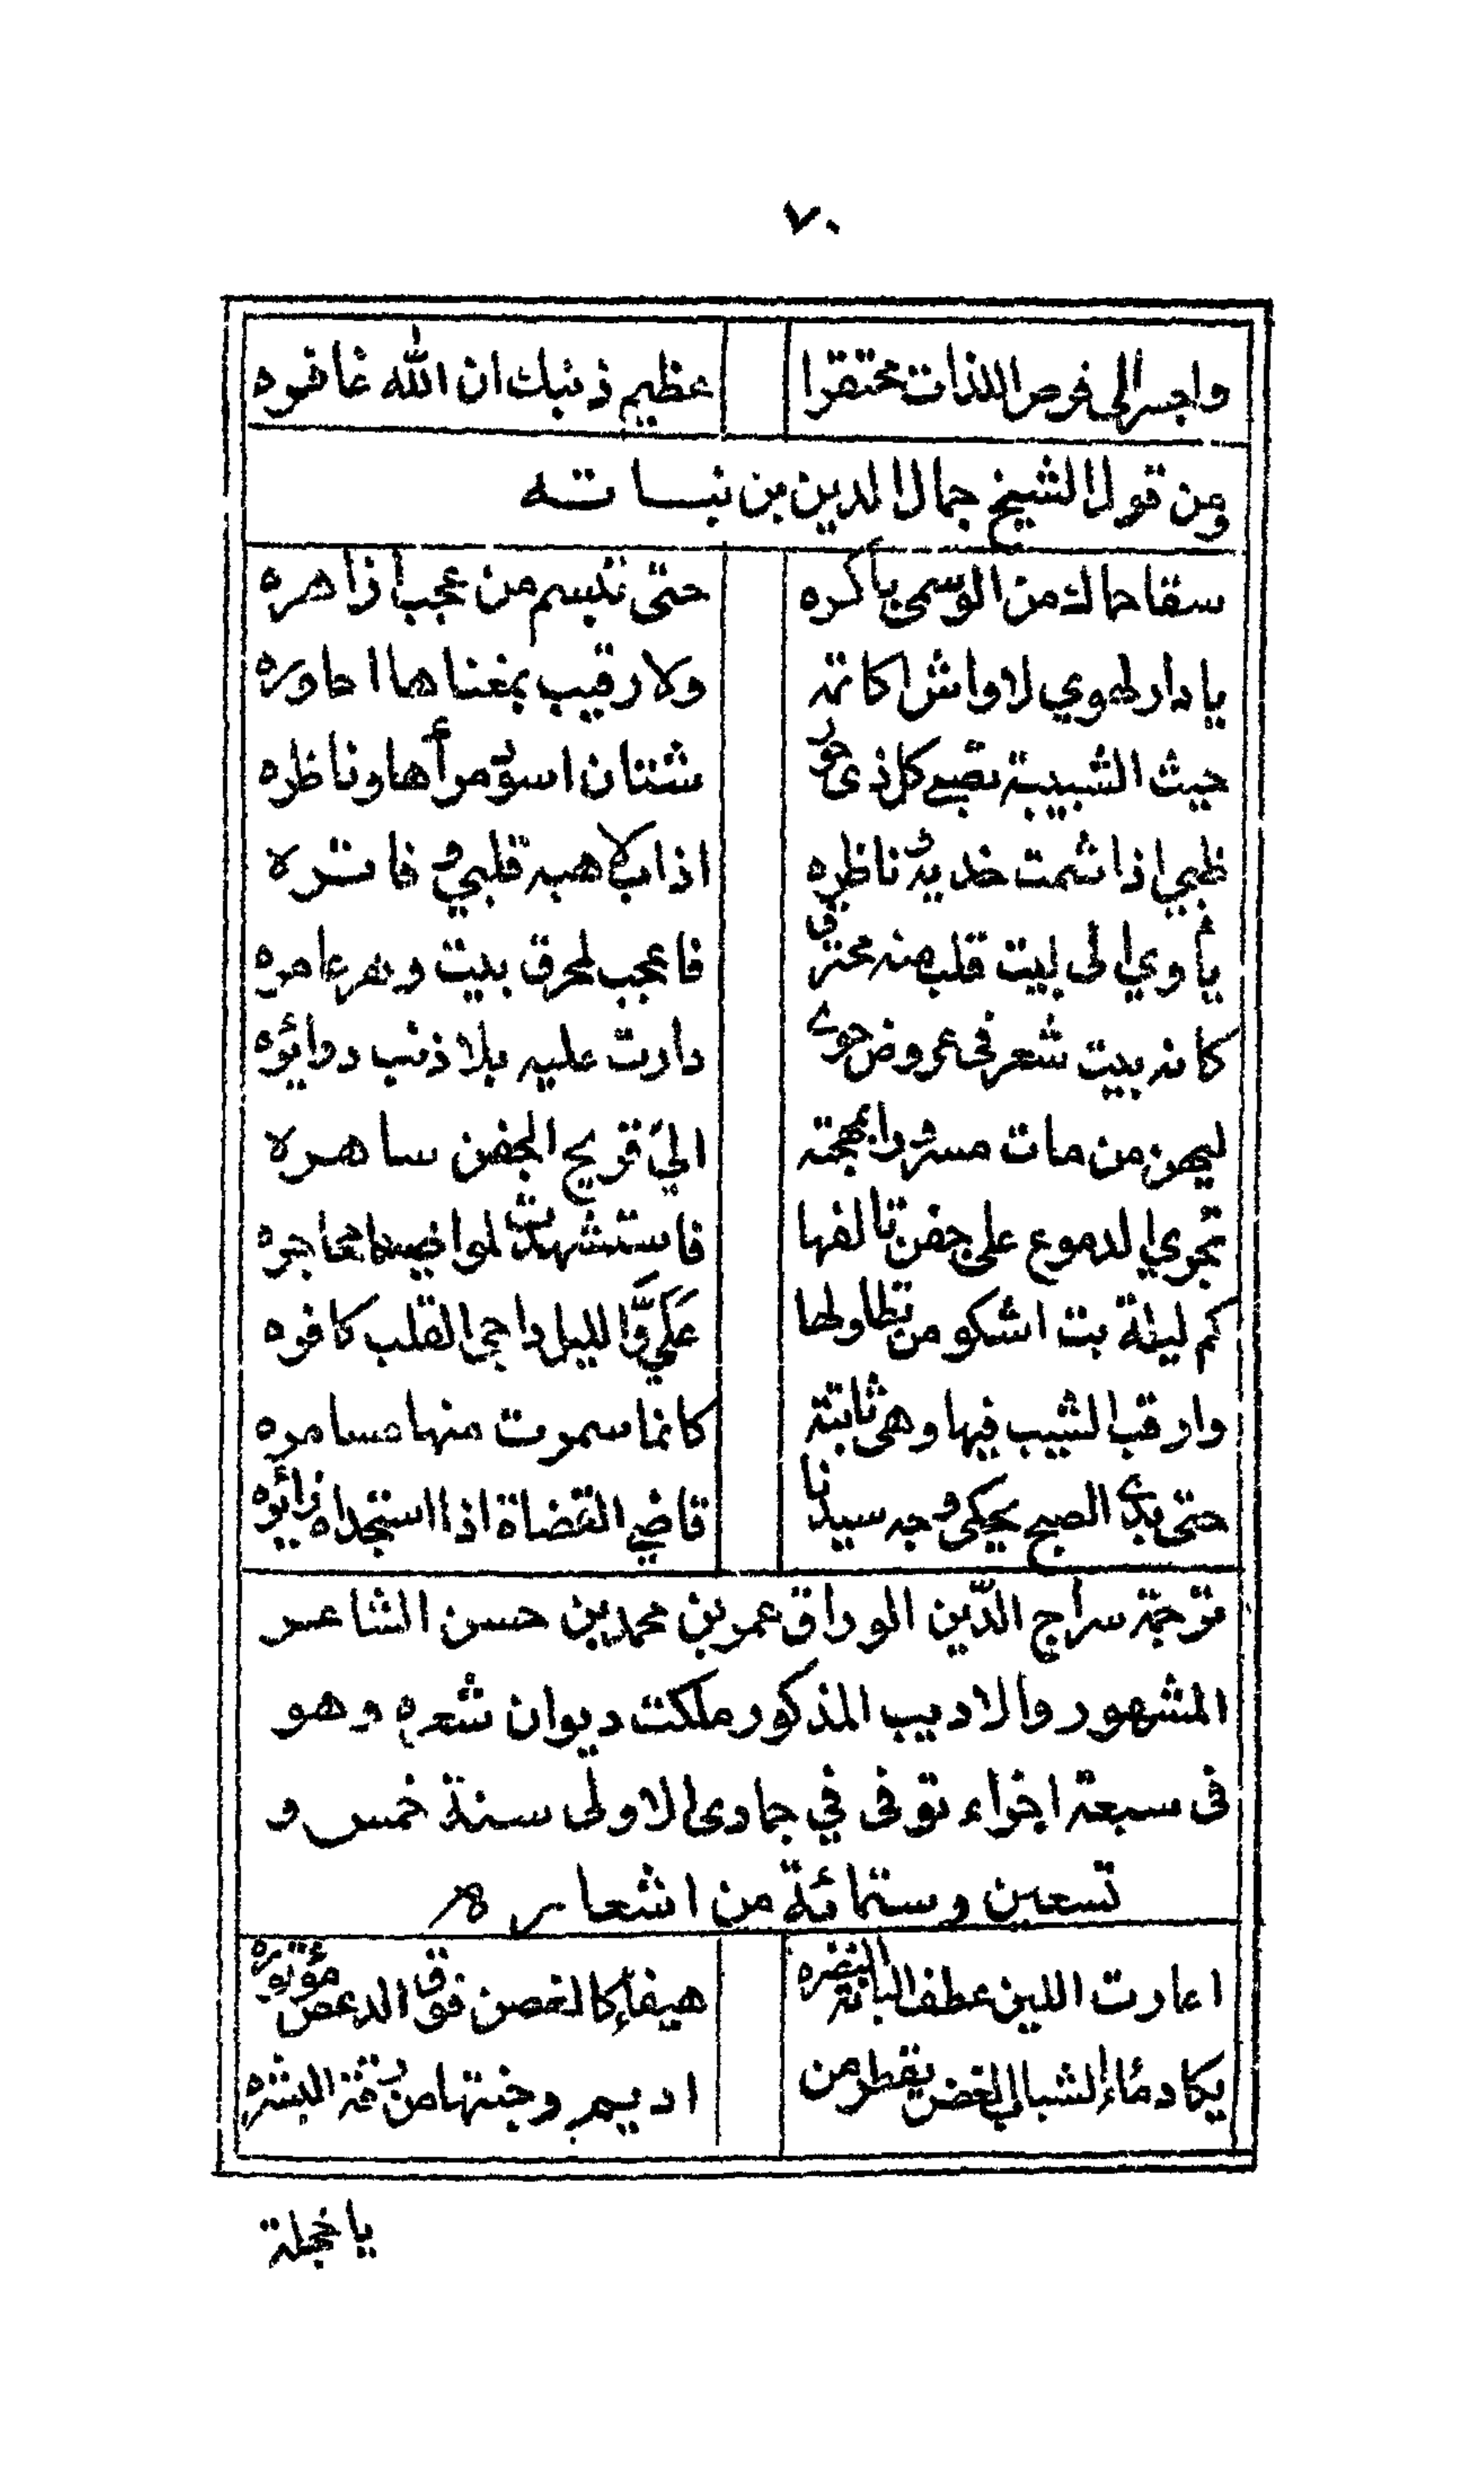 ٧٠
واجسرالى فرص اللذات محتقرا عظيم ذنبك ان الله غافره
ومن قول الشيخ جمال الدين بن نباته
سقا حماك من الوسمى باكره حتى تبسم من عجب ازاهره
يا دار لهوي لا واش اكاتمه ولا رقيب بمغناها احاوره
حيث الشبيبة تصبى كل ذى حور شتان اسوّ مرأها وناظره
ظبي اذا شمت خديه وناظره اذابك لاهبه قلبي و فاتره
يأوي الى بيت قلب منه محترق فاعجب لمحرق بيت وهو عامره
كانه بيت شعر فى عروض جوى دارت عليه بلا ذنب دوائره
ليهن من مات مسرورا بمهجته الي قريح الجفن ساهره
تجرى الدموع على جفن تالفها فاستشهدت لمواضيها محاجره
كم ليلة بت اشكو من تطاولها عَلَيَّ والليل داجى القلب كافره
وارقب الشيب فيها وهى ثابتة كانما سمرت منها مسامره
حتى بدى الصبح يحكى وجه سيدنا قاضي القضاة اذا استجداه زائره
ترجمة سراج الدّين الوراق عمر بن محمد بن حسن الشاعر
المشهور والاديب المذكور ملكت ديوان شعره وهو
فى سبعة اجزاء توفى في جمادى الاولى سنة خمس و
تسعين وستمائة من اشعاره
اعارت اللين عطف البانة النضره هيفاء كالغصن فوق الدعص مؤتزره
يكاد ماء الشباب الغض يقطر من اديم وجنتها من رقة البشره
يا خجلة